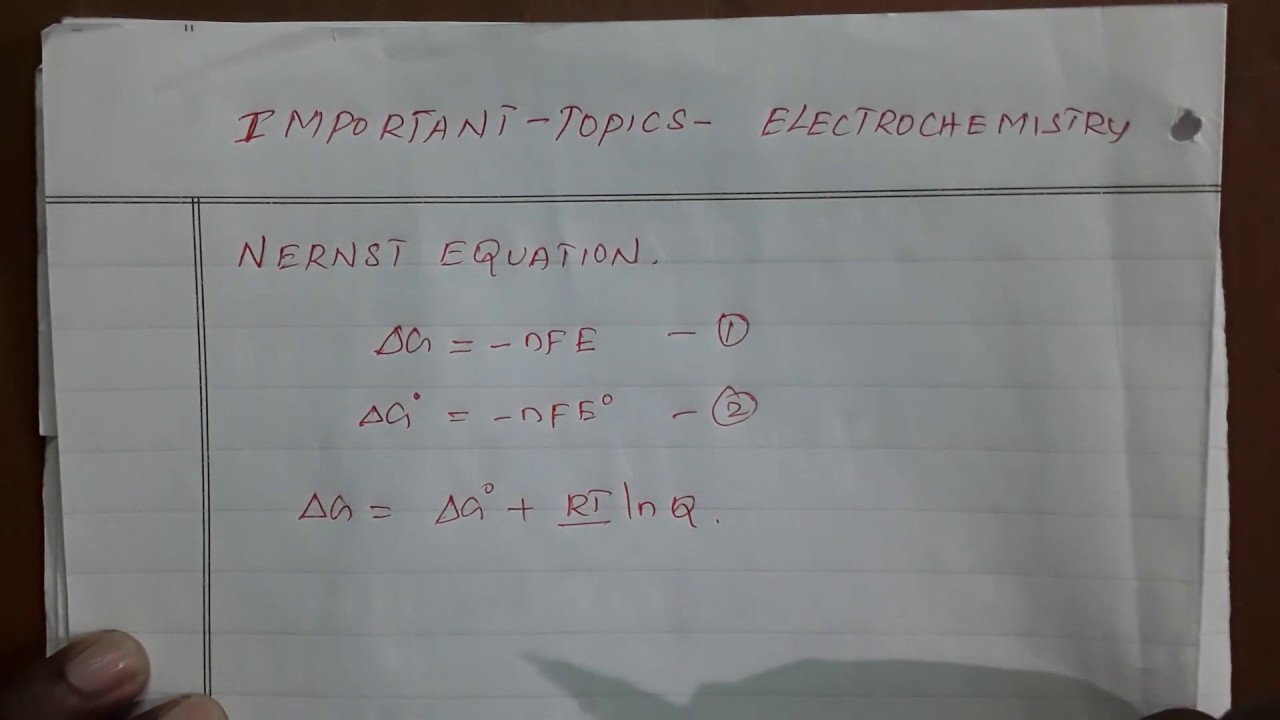 IMPORTANT-TOPICS- ELECTROCHEMISTRY
NERNST EQUATION.
ΔG = -nFE - ①
ΔG° = -nFE° - ②
ΔG = ΔG° + RT ln Q.